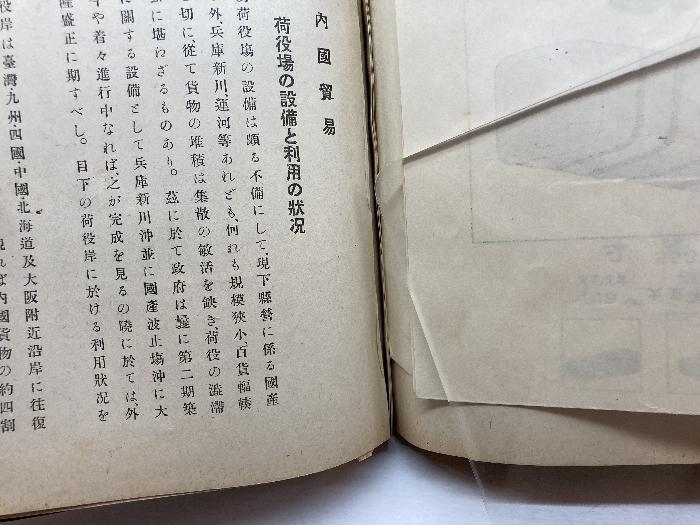 內國貿易
荷役場の設備と利用の狀況
荷役場の設備は頗る不備にして、現下縣營に係る國產
外、兵庫新川、運河等あれども、何れも規模狹小、百貨輻輳
切に、從て貨物の堆積は集散の敏活を缺き、荷役の澁滯
に堪わざるものあり。玆に於て政府は曩に第二期築
に關する設備として兵庫新川沖並に國產波止塲沖に大
や着々進行中なれば、之が完成を見るの曉に於ては、外
隆盛正に期すべし。目下の荷役岸に於ける利用狀況を
役岸は臺灣・九州四國・中國・北海道及大阪附近沿岸に往復
れば內國貨物の約四割